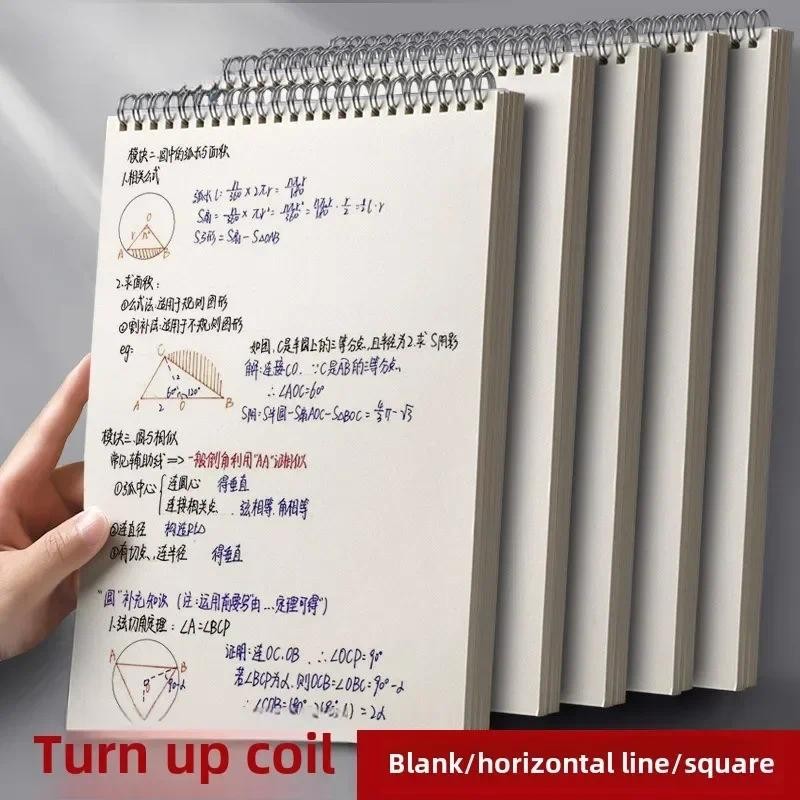 模块二.圆中的弧长与面积
1.相关公式
弧长 l = n/360 × 2πr = nπr/180
S扇 = n/360 × πr² = nπr²/360 = nπr/180 · r/2 = 1/2 l·r
S弓形 = S扇 - S△OAB
O
r n°
A B
2.求面积:
①公式法:适用于规则图形
②割补法:适用于不规则图形
eg:
如图,C是半圆上的三等分点,且半径为2.求 S阴影
解:连接CO. ∵C是AB的三等分点
∴∠AOC=60°
S阴=S半圆-S扇AOC-S△BOC = 4/3π-√3
C
60° 120°
A 2 O B
模块三.圆与相似
常见辅助线=>一般倒角利用"AA"证相似
①弧中心 { 连圆心 得垂直
连接相关点 . 弦相等.角相等
②连直径 构造Rt△
③有切点,连半径 得垂直
"圆"补充知识 (注:运用前要写"由...定理可得")
1.弦切角定理: ∠A=∠BCP
证明:连OC.OB .∴∠OCP=90°
若∠BCP为α.则∠OCB=∠OBC=90°-α
=2α
A B
90-α
Turn up coil
Blank/horizontal line/square